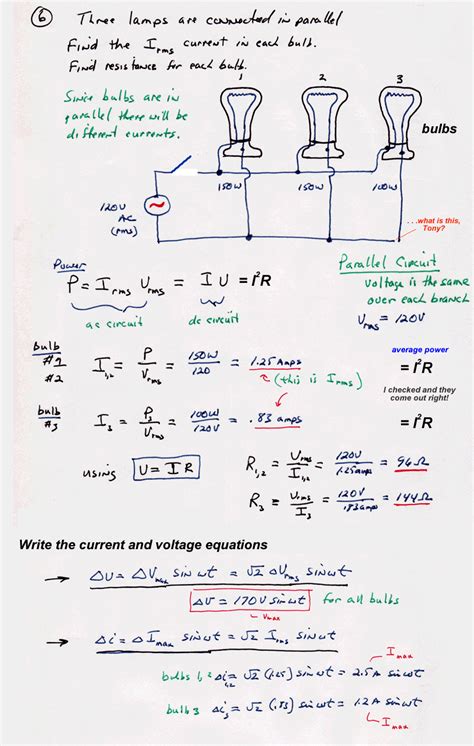 ⑥ Three lamps are connected in parallel
Find the Irms current in each bulb.
Find resistance for each bulb.
Since bulbs are in
parallel there will be
different currents.
1 2 3
bulbs
150W 150W 100W
120V
AC
(rms)
...what is this,
Tony?
Parallel Circuit
Voltage is the same
over each branch
Urms = 120V
Power
P = Irms Urms = I U = I²R
ac circuit dc circuit
average power
bulb
#1
#2
I1,2 = P/Vrms = 150W/120 = 1.25 Amps = I²R
(this is Irms)
I checked and they
come out right!
bulb
#3
I3 = P3/Urms = 100W/120V = .83 amps = I²R
using U = I R
R1,2 = Urms/I1,2 = 120V/1.25amps = 96Ω
R3 = Urms/I3 = 120V/.83amps = 144Ω
Write the current and voltage equations
→ ΔU = ΔVmax sin ωt = √2 ΔVrms sin ωt
ΔV = 170V sin ωt for all bulbs
Vmax
→ Δi = ΔImax sin ωt = √2 Irms sin ωt
Imax
bulbs 1,2 Δi1,2 = √2 (1.25) sin ωt = 2.5A sin ωt
bulb 3 Δi3 = √2 (.83) sin ωt = 1.2A sin ωt
Imax